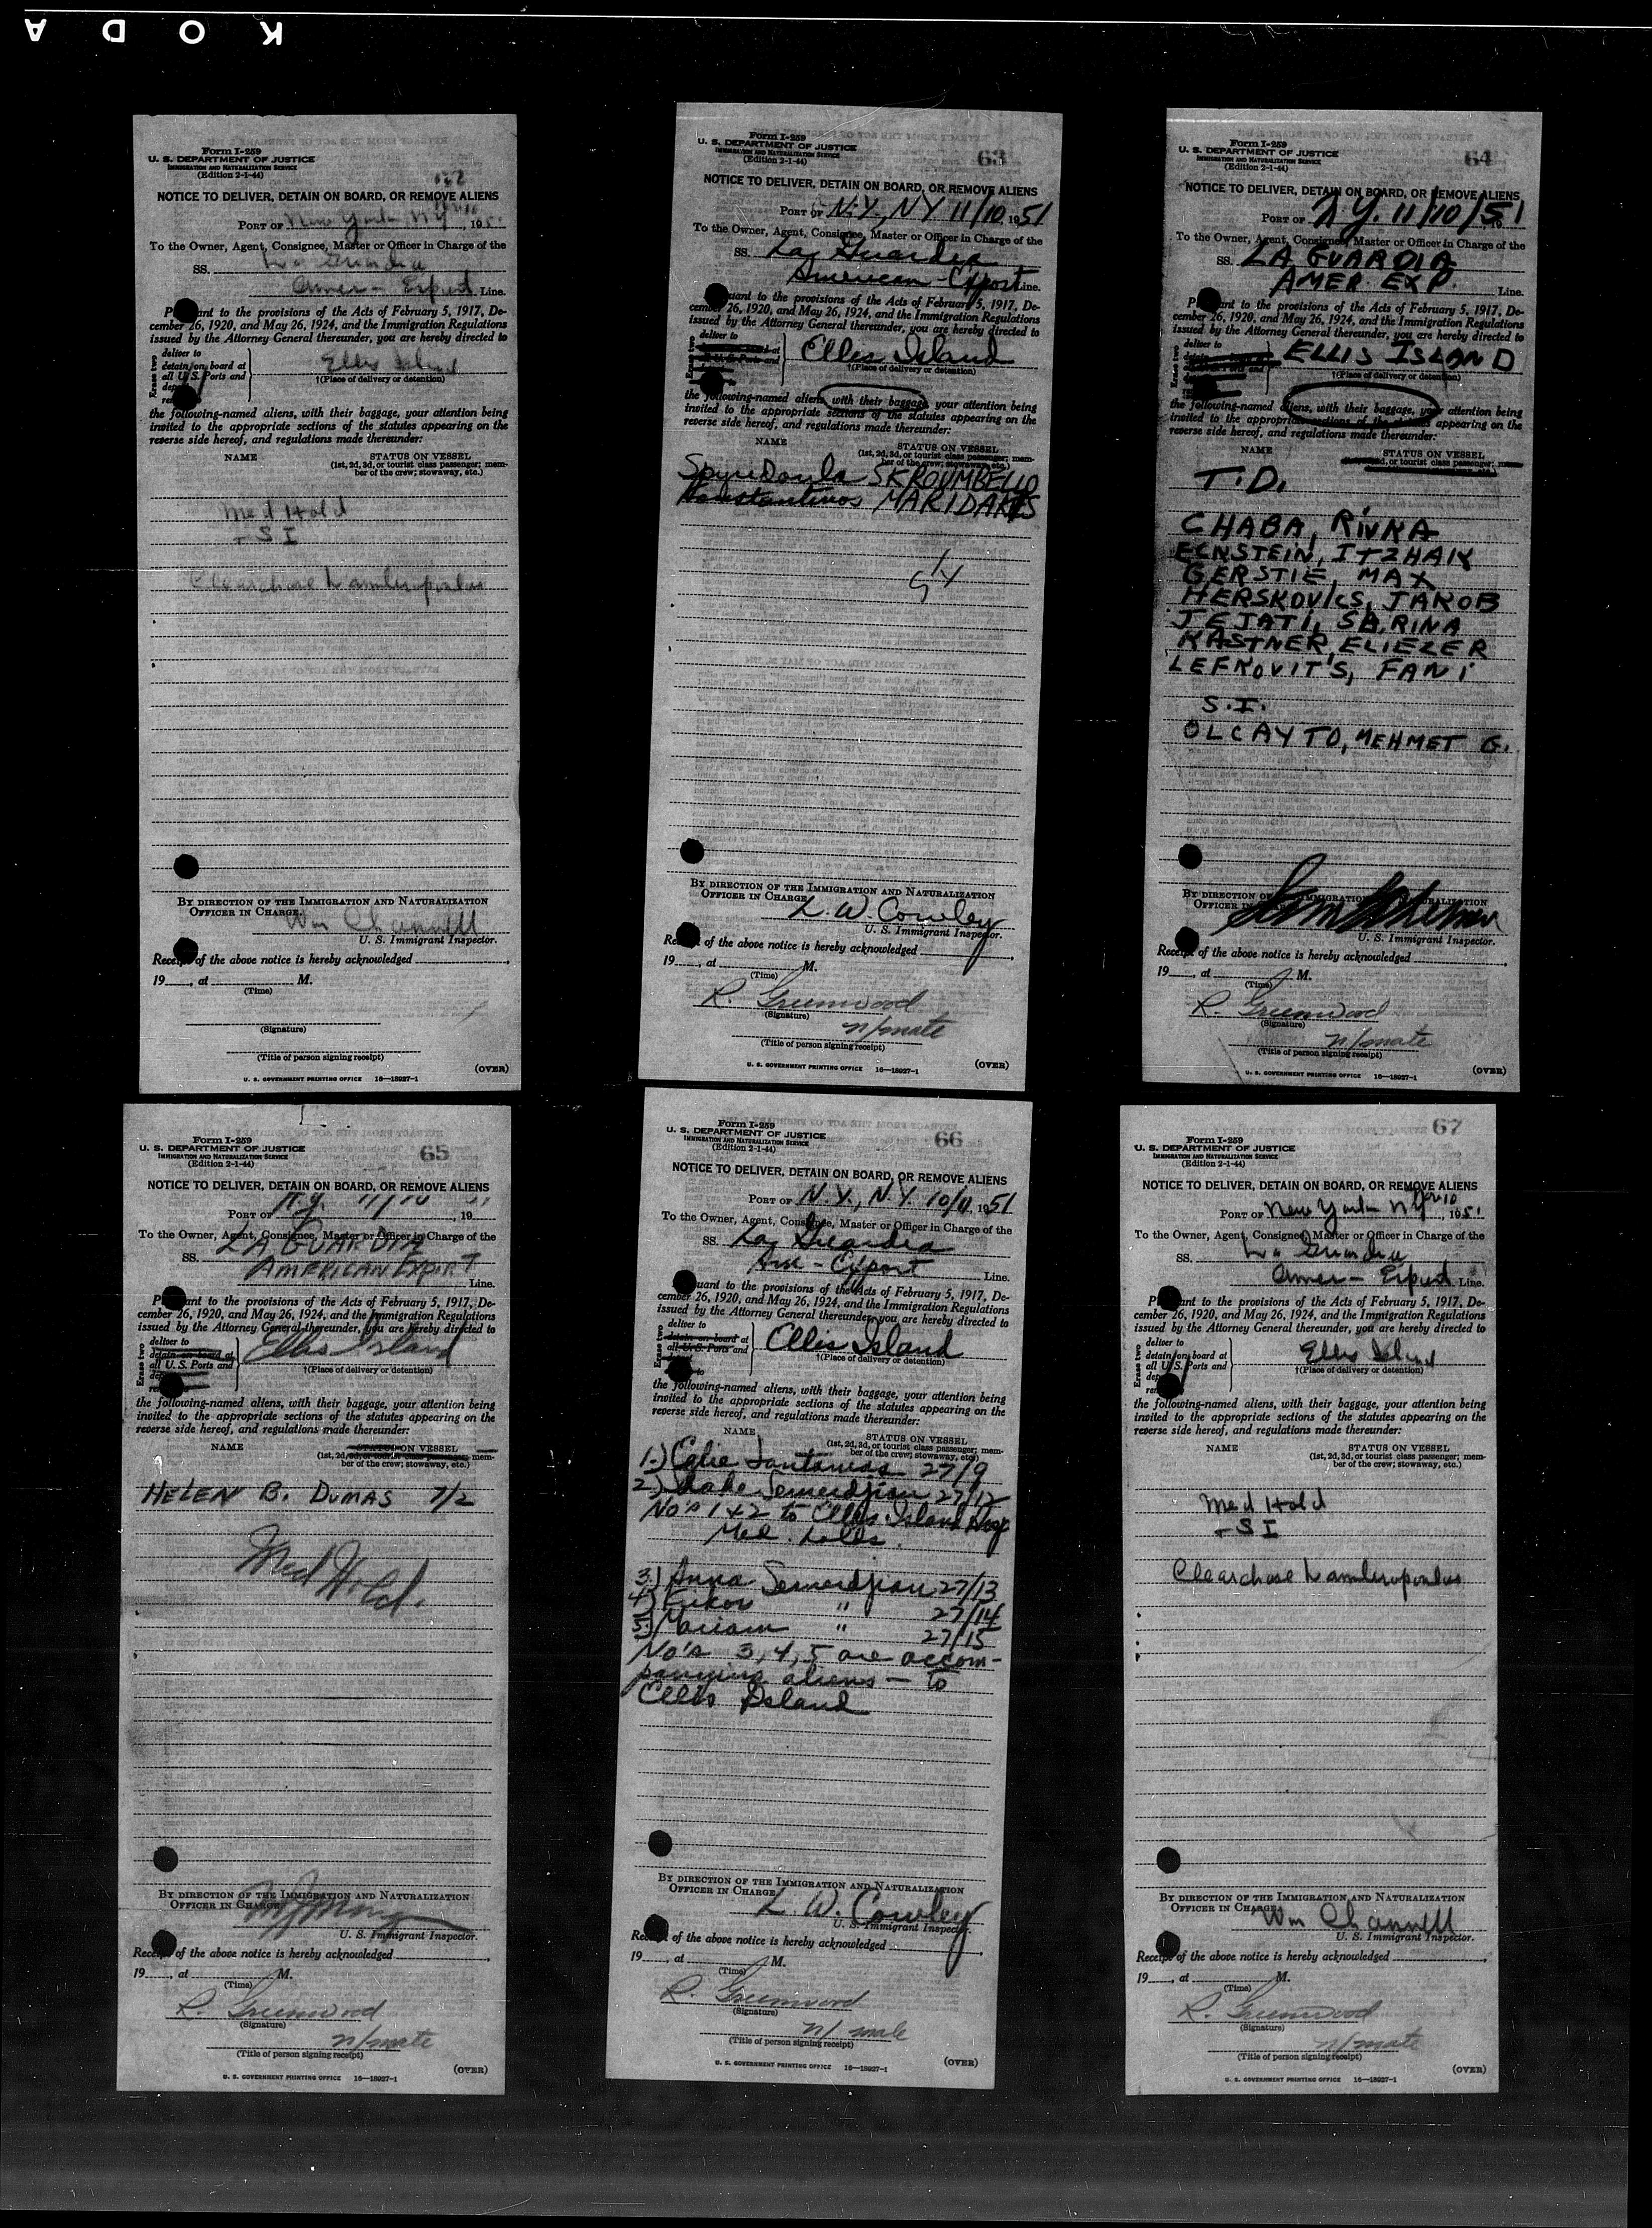 KODA
Form I-259
U. S. DEPARTMENT OF JUSTICE
IMMIGRATION AND NATURALIZATION SERVICE
(Edition 2-1-44)
NOTICE TO DELIVER, DETAIN ON BOARD, OR REMOVE ALIENS
PORT OF New York NY Nov 10, 195
To the Owner, Agent, Consignee, Master or Officer in Charge of the
SS. La Guardia
Amer - Export Line.
ant to the provisions of the Acts of February 5, 1917, De-
cember 26, 1920, and May 26, 1924, and the Immigration Regulations
issued by the Attorney General thereunder, you are hereby directed to
Erase two
deliver to
detain on board at
all U.S. Ports and
Ellis Island
†(Place of delivery or detention)
the following-named aliens, with their baggage, your attention being
invited to the appropriate sections of the statutes appearing on the
reverse side hereof, and regulations made thereunder:
NAME STATUS ON VESSEL
(1st, 2d, 3d, or tourist class passenger; mem-
ber of the crew; stowaway, etc.)
Med Hold
- S I
BY DIRECTION OF THE IMMIGRATION AND NATURALIZATION
OFFICER IN CHARGE.
Wm Channell
U. S. Immigrant Inspector.
Receipt of the above notice is hereby acknowledged
19 , at M.
(Time)
(Signature)
(Title of person signing receipt)
(OVER)
U. S. GOVERNMENT PRINTING OFFICE 16—18927-1
Form I-259
63
U. S. DEPARTMENT OF JUSTICE
IMMIGRATION AND NATURALIZATION SERVICE
(Edition 2-1-44)
NOTICE TO DELIVER, DETAIN ON BOARD, OR REMOVE ALIENS
PORT OF N.Y., NY 11/10 1951
To the Owner, Agent, Consignee, Master or Officer in Charge of the
SS. La Guardia
American - Export Line.
uant to the provisions of the Acts of February 5, 1917, De-
cember 26, 1920, and May 26, 1924, and the Immigration Regulations
issued by the Attorney General thereunder, you are hereby directed to
Erase two
deliver to
Ellis Island
†(Place of delivery or detention)
the following-named aliens, with their baggage, your attention being
invited to the appropriate sections of the statutes appearing on the
reverse side hereof, and regulations made thereunder:
NAME STATUS ON VESSEL
(1st, 2d, 3d, or tourist class passenger; mem-
ber of the crew; stowaway, etc.)
Spyredoula SKROUMBELLO
Konstantinos MARIDAKIS
BY DIRECTION OF THE IMMIGRATION AND NATURALIZATION
OFFICER IN CHARGE.
L. W. Cowley
U. S. Immigrant Inspector.
Receipt of the above notice is hereby acknowledged
19 , at M.
(Time)
R. Greenwood
(Signature)
n/mate
(Title of person signing receipt)
(OVER)
U. S. GOVERNMENT PRINTING OFFICE 16—18927-1
Form I-259
64
U. S. DEPARTMENT OF JUSTICE
IMMIGRATION AND NATURALIZATION SERVICE
(Edition 2-1-44)
NOTICE TO DELIVER, DETAIN ON BOARD, OR REMOVE ALIENS
PORT OF N.Y. 11/10/51
To the Owner, Agent, Consignee, Master or Officer in Charge of the
SS. LA GUARDIA
AMER EXP. Line.
ant to the provisions of the Acts of February 5, 1917, De-
cember 26, 1920, and May 26, 1924, and the Immigration Regulations
issued by the Attorney General thereunder, you are hereby directed to
Erase two
deliver to
ELLIS ISLAND
†(Place of delivery or detention)
the following-named aliens, with their baggage, your attention being
invited to the appropriate sections of the statutes appearing on the
reverse side hereof, and regulations made thereunder:
NAME STATUS ON VESSEL
T.D.
CHABA, RIVKA
ECNSTEIN, ITZHAK
GERSTIE, MAX
HERSKOVICS, JAKOB
JEJATI, SABRINA
KASTNER, ELIEZER
LEFKOVIT'S, FANI
S.I.
OLCAYTO, MEHMET G.
BY DIRECTION OF THE IMMIGRATION AND NATURALIZATION
OFFICER IN CHARGE.
U. S. Immigrant Inspector.
Receipt of the above notice is hereby acknowledged
19 , at M.
(Time)
R. Greenwood
(Signature)
n/mate
(Title of person signing receipt)
(OVER)
U. S. GOVERNMENT PRINTING OFFICE 16—18927-1
Form I-259
65
U. S. DEPARTMENT OF JUSTICE
IMMIGRATION AND NATURALIZATION SERVICE
(Edition 2-1-44)
NOTICE TO DELIVER, DETAIN ON BOARD, OR REMOVE ALIENS
PORT OF N.Y. 11/10, 19
To the Owner, Agent, Consignee, Master or Officer in Charge of the
SS. LA GUARDIA
AMERICAN EXPORT Line.
ant to the provisions of the Acts of February 5, 1917, De-
cember 26, 1920, and May 26, 1924, and the Immigration Regulations
issued by the Attorney General thereunder, you are hereby directed to
Erase two
deliver to
detain on board at
all U.S. Ports and
Ellis Island
†(Place of delivery or detention)
the following-named aliens, with their baggage, your attention being
invited to the appropriate sections of the statutes appearing on the
reverse side hereof, and regulations made thereunder:
NAME STATUS ON VESSEL
(1st, 2d, 3d, or tourist class passenger; mem-
ber of the crew; stowaway, etc.)
HELEN B. DUMAS 7/2
Med Hold.
BY DIRECTION OF THE IMMIGRATION AND NATURALIZATION
OFFICER IN CHARGE.
U. S. Immigrant Inspector.
Receipt of the above notice is hereby acknowledged
19 , at M.
(Time)
R. Greenwood
(Signature)
n/mate
(Title of person signing receipt)
(OVER)
U. S. GOVERNMENT PRINTING OFFICE 16—18927-1
Form I-259
66
U. S. DEPARTMENT OF JUSTICE
IMMIGRATION AND NATURALIZATION SERVICE
(Edition 2-1-44)
NOTICE TO DELIVER, DETAIN ON BOARD, OR REMOVE ALIENS
PORT OF N.Y., N.Y. 10/11 1951
To the Owner, Agent, Consignee, Master or Officer in Charge of the
SS. La Guardia
Am - Export Line.
uant to the provisions of the Acts of February 5, 1917, De-
cember 26, 1920, and May 26, 1924, and the Immigration Regulations
issued by the Attorney General thereunder, you are hereby directed to
Erase two
deliver to
detain on board at
all U.S. Ports and
Ellis Island
†(Place of delivery or detention)
the following-named aliens, with their baggage, your attention being
invited to the appropriate sections of the statutes appearing on the
reverse side hereof, and regulations made thereunder:
NAME STATUS ON VESSEL
(1st, 2d, 3d, or tourist class passenger; mem-
ber of the crew; stowaway, etc.)
1.) 27/9
2.) Semerdjian 27/12
No's 1 & 2 to Ellis Island Hosp
Med. holds.
3.) Anna Semerdjian 27/13
4.) " 27/14
5.) Mariam " 27/15
No's 3, 4, 5 are accom-
panying aliens — to
Ellis Island
BY DIRECTION OF THE IMMIGRATION AND NATURALIZATION
OFFICER IN CHARGE.
L. W. Cowley
U. S. Immigrant Inspector.
Receipt of the above notice is hereby acknowledged
19 , at M.
(Time)
R. Greenwood
(Signature)
n/mate
(Title of person signing receipt)
(OVER)
U. S. GOVERNMENT PRINTING OFFICE 16—18927-1
Form I-259
67
U. S. DEPARTMENT OF JUSTICE
IMMIGRATION AND NATURALIZATION SERVICE
(Edition 2-1-44)
NOTICE TO DELIVER, DETAIN ON BOARD, OR REMOVE ALIENS
PORT OF New York NY Nov 10, 1951
To the Owner, Agent, Consignee, Master or Officer in Charge of the
SS. La Guardia
Amer - Export Line.
ant to the provisions of the Acts of February 5, 1917, De-
cember 26, 1920, and May 26, 1924, and the Immigration Regulations
issued by the Attorney General thereunder, you are hereby directed to
Erase two
deliver to
detain on board at
all U.S. Ports and
Ellis Island
†(Place of delivery or detention)
the following-named aliens, with their baggage, your attention being
invited to the appropriate sections of the statutes appearing on the
reverse side hereof, and regulations made thereunder:
NAME STATUS ON VESSEL
(1st, 2d, 3d, or tourist class passenger; mem-
ber of the crew; stowaway, etc.)
Med Hold
- S I
BY DIRECTION OF THE IMMIGRATION AND NATURALIZATION
OFFICER IN CHARGE.
Wm Channell
U. S. Immigrant Inspector.
Receipt of the above notice is hereby acknowledged
19 , at M.
(Time)
R. Greenwood
(Signature)
n/mate
(Title of person signing receipt)
(OVER)
U. S. GOVERNMENT PRINTING OFFICE 16—18927-1